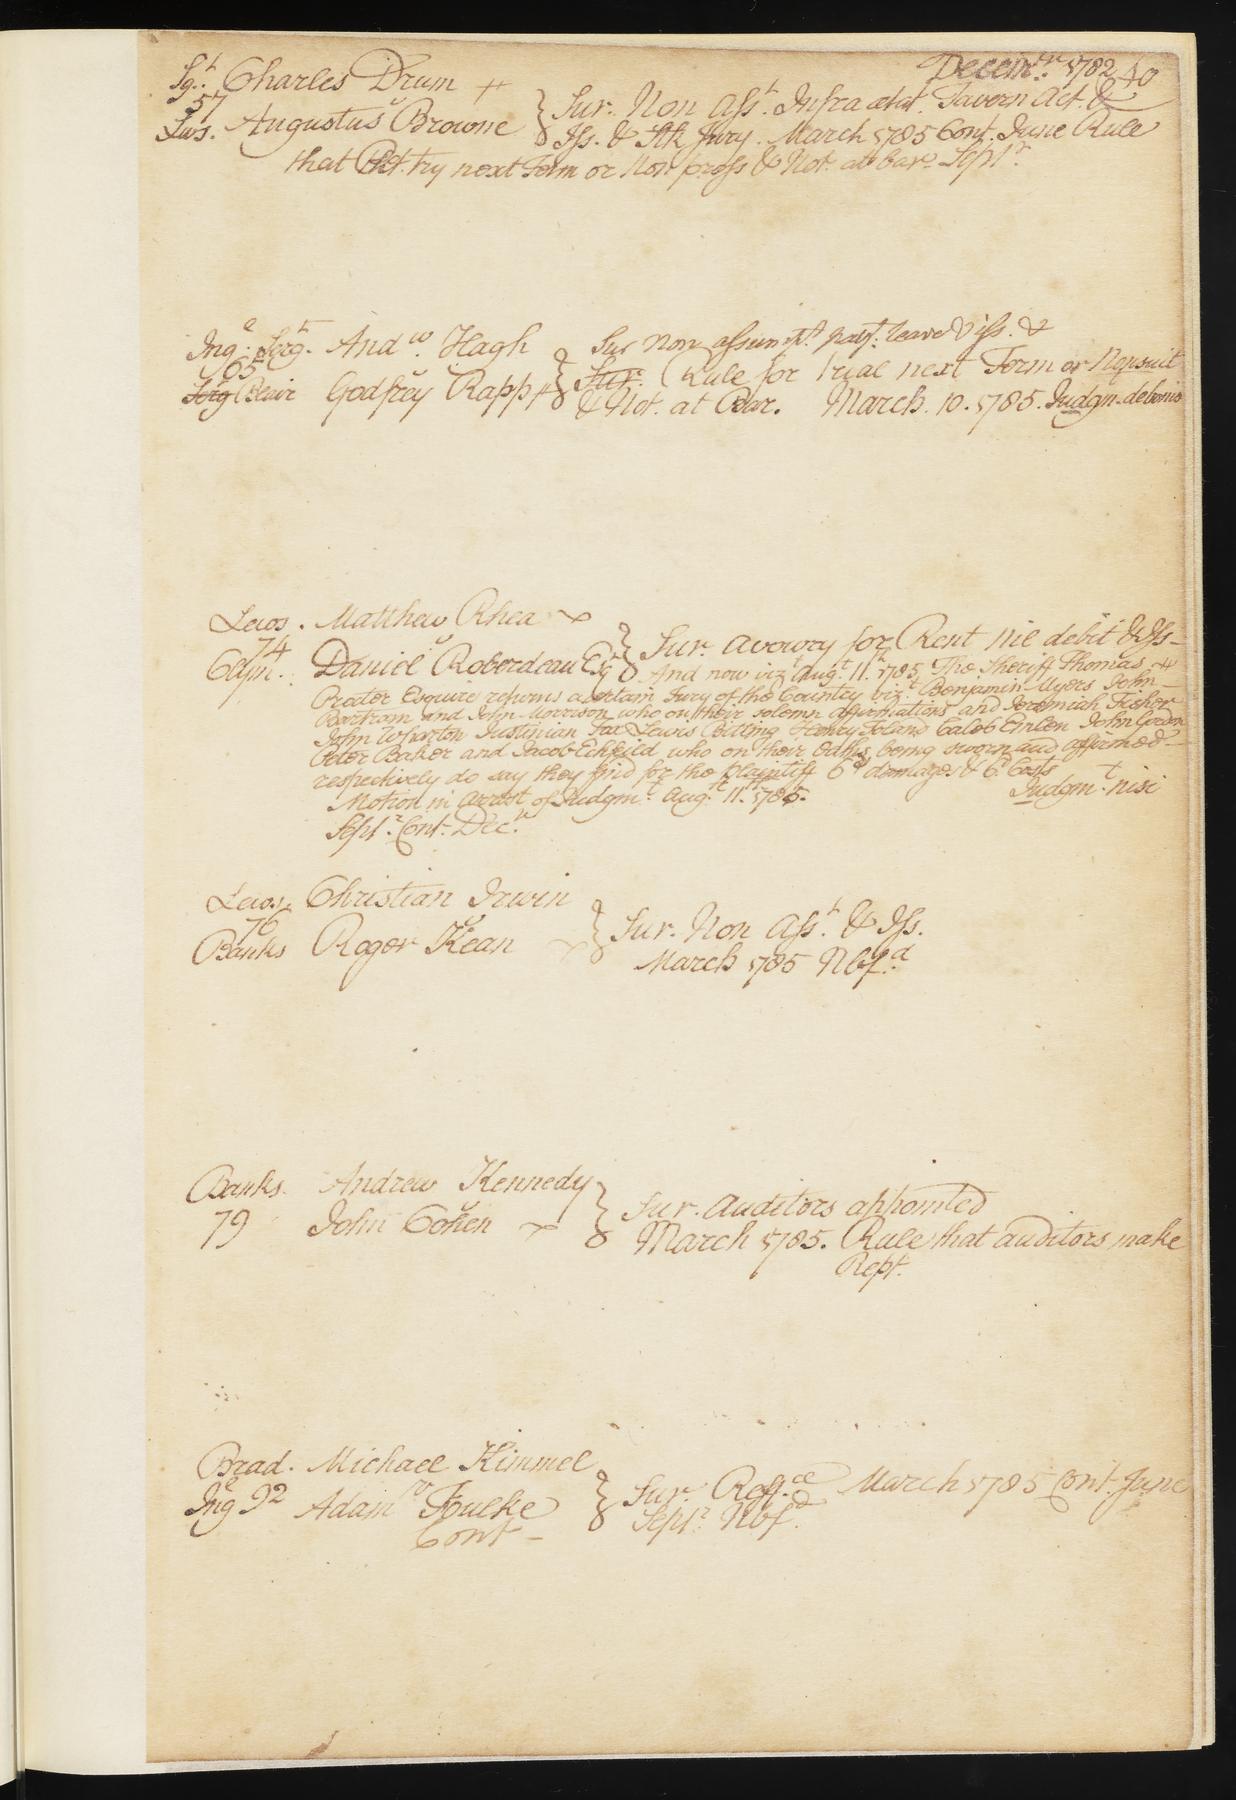 Decem.br 1782 40
Sg.t Charles Drum
57 v
Lws. Augustus Browne } Sur. Non Asst. Infra ætat. Tavern Act. &
Iss. & Stk Jury. March 1785 Cont. June Rule
that Plt. try next Term or Non pross & Not. at bar. Sept.r
Ing.e Serg.t And.w Hagh } Sur Non assumpt. payt. leave & iss. &
65 v
Serg Blair Godfrey Rapp Sur. Rule for Trial next Term or Nonsuit
& Not. at Bar. March. 10. 1785. Judgm. de bonis
Lewis. Matthew Rhea
74 v
Clym. Daniel Roberdeau Esq.r } Sur. avowry for Rent nil debit & Iss
And now viz.t Aug.t 11.th 1785 The Sheriff Thomas
Procter Esquire returns a certain Jury of the Country viz.t Benjamin Myers John
Bartram and John Morrison who on their solemn affirmations and Jeremiah Fisher
John Wharton Justinian Fox Lewis Bitting Henry Toland Caleb Emlen John Gordon
Peter Baker and Jacob Eckfeild who on their Oaths being sworn and affirmed
respectively do say they find for the plaintiff 6d damages & 6d Costs
Judgm.t nisi
Motion in arrest of Judgm.t Aug.t 11.th 1785.
Sept.r Cont. Dec.r
Lewis. Christian Irwin
76 v
Banks Roger Kean } Sur. Non Asst. & Iss.
March 1785 Nbf.d
Banks. Andrew Kennedy
79 v
John Cohen } Sur. Auditors appointed
March 1785. Rule that auditors make
Rept.
Brad. Michael Kimmel
Ing.e 92 v Adam Foulke } Sur. Reff.ce March 1785 Cont. June
Sept.r Nbf.d
Cont